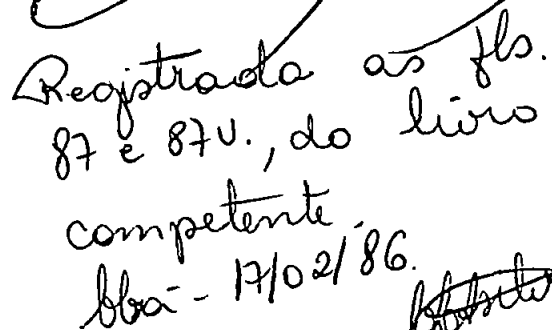 Registrada as fls.
87 e 87v., do livro
competente.
17/02/86.